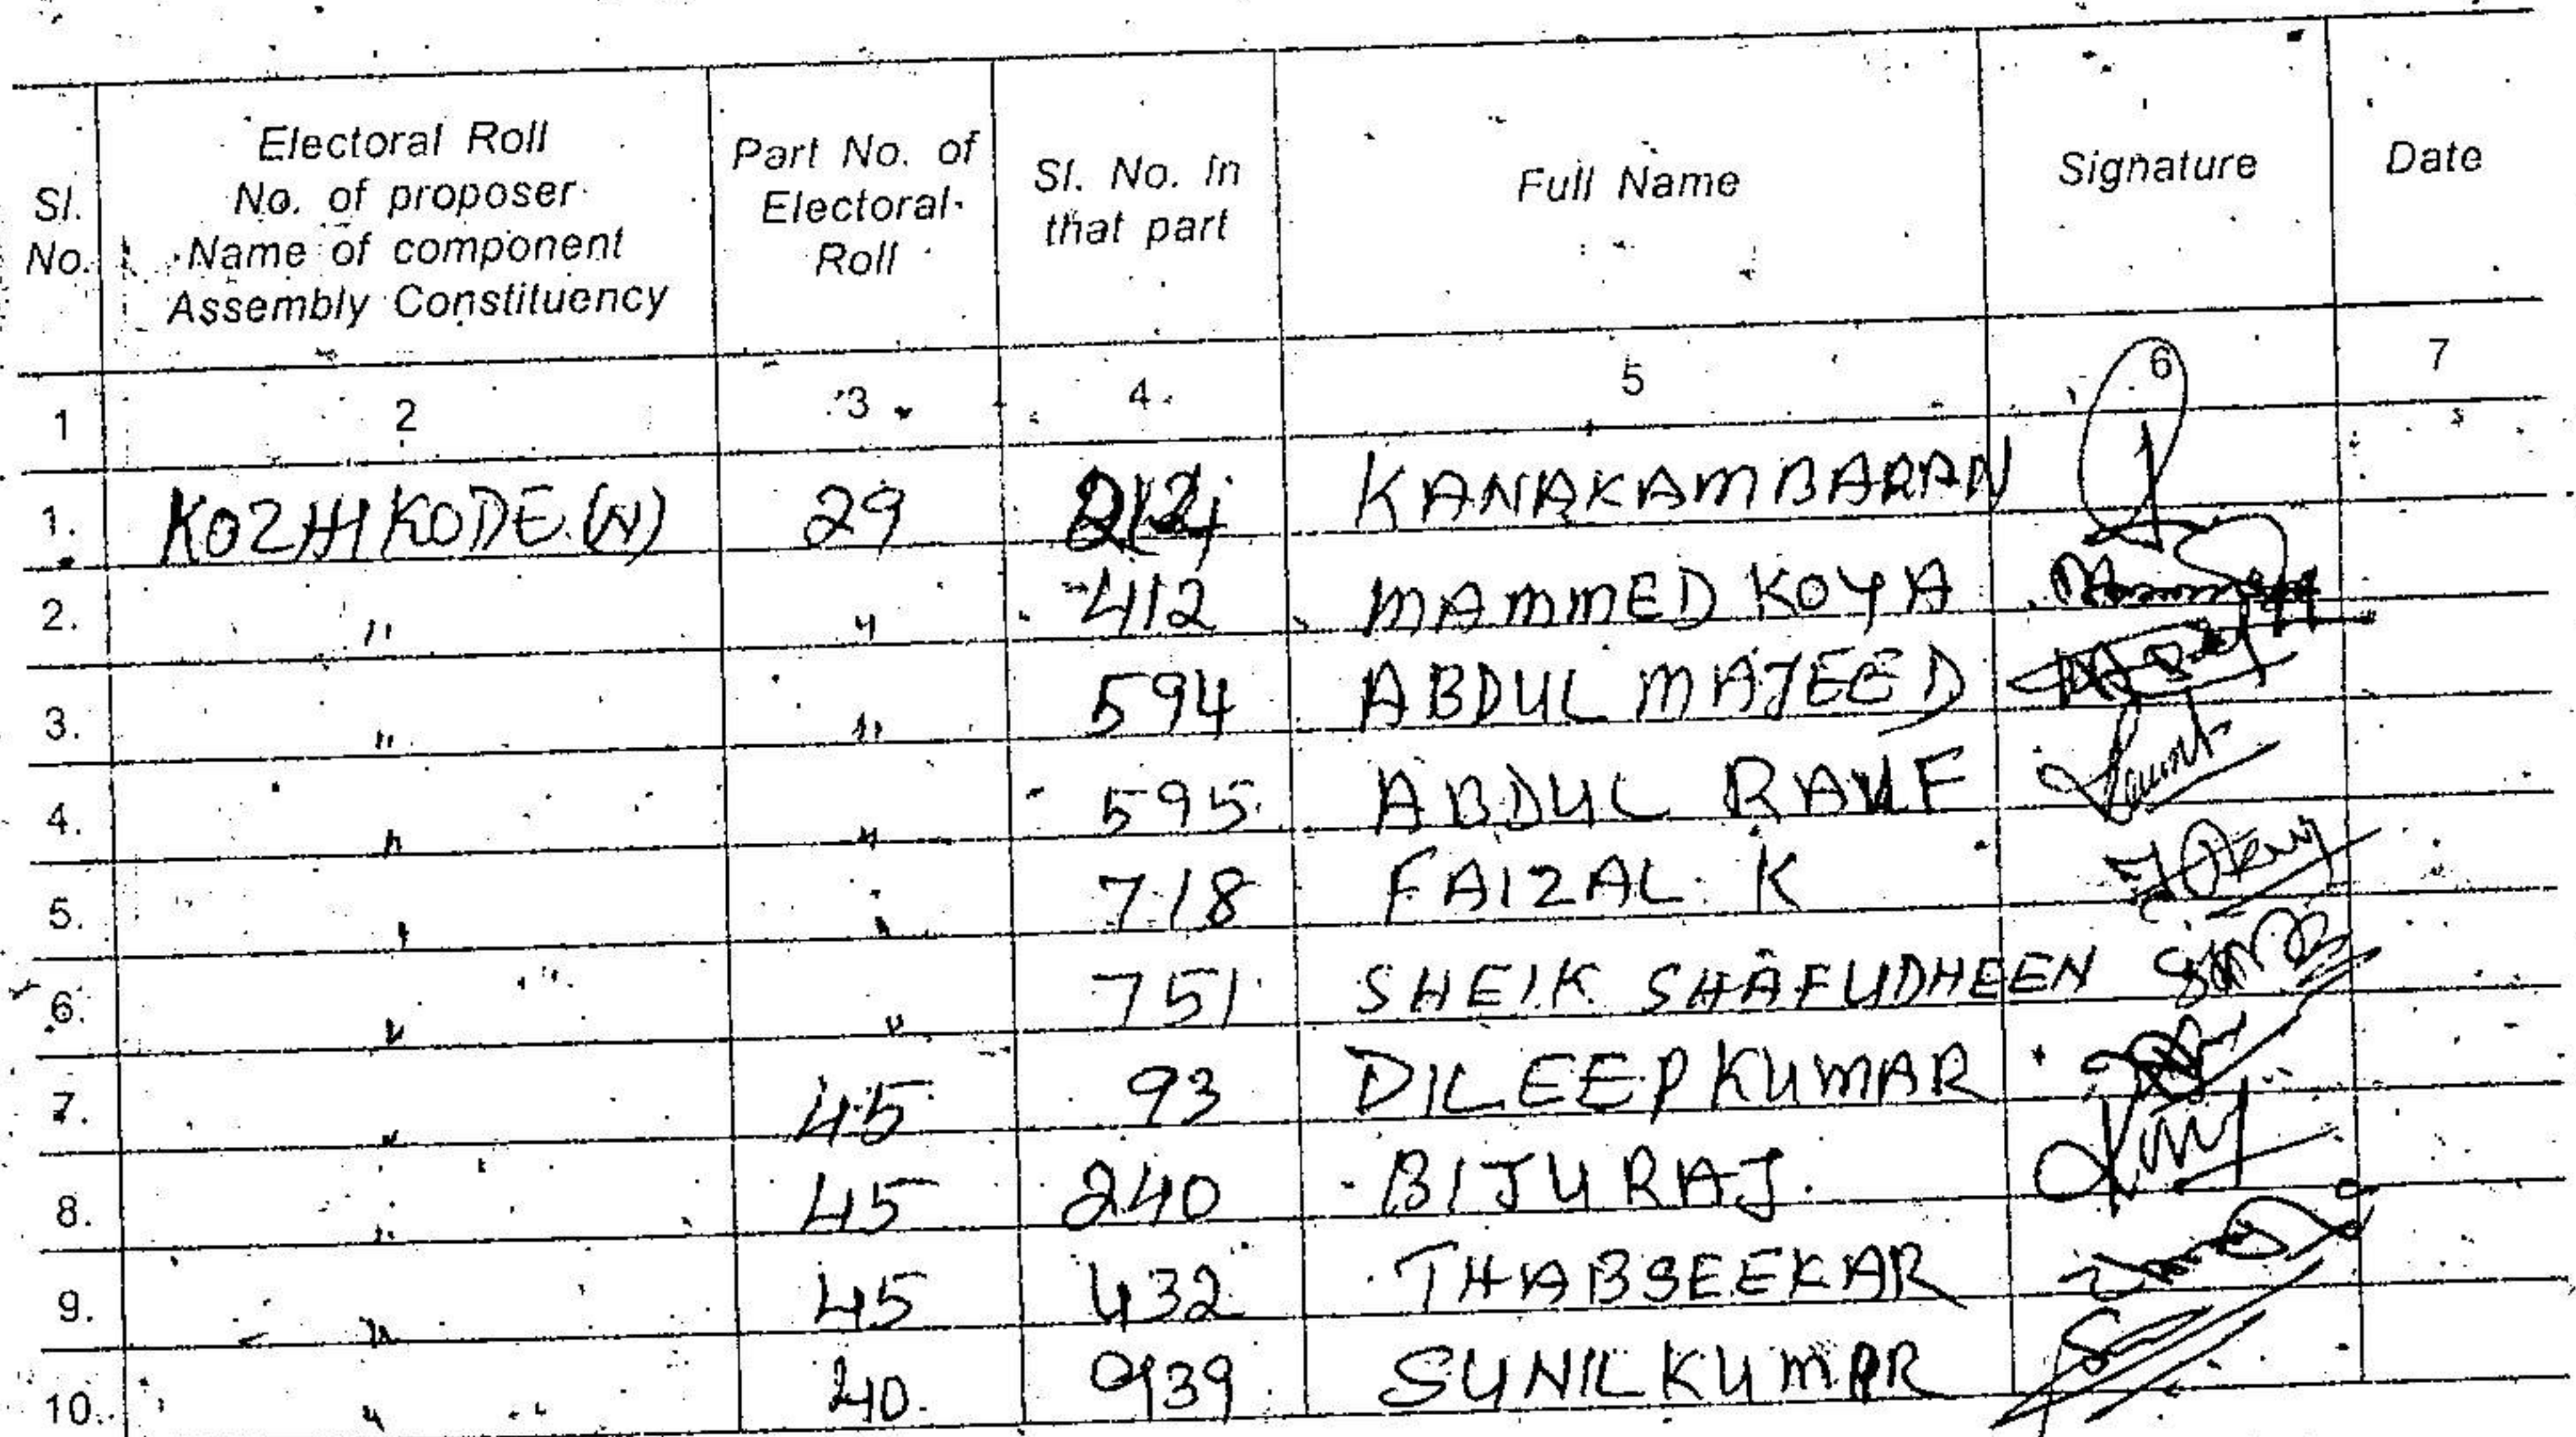 Sl. No. | Electoral Roll No. of proposer Name of component Assembly Constituency | Part No. of Electoral Roll | Sl. No. in that part | Full Name | Signature | Date
1 | 2 | 3 | 4 | 5 | 6 | 7
1. | KOZHIKODE (N) | 29 | | KANAKAMBARAN
2. | " | " | 412 | MAMMED KOYA
3. | " | " | 594 | ABDUL MAJEED
4. | " | " | 595 | ABDUL RAUF
5. | " | " | 718 | FAIZAL K
6. | " | " | 751 | SHEIK SHAFUDHEEN
7. | " | 45 | 93 | DILEEPKUMAR
8. | " | 45 | 240 | BIJURAJ.
9. | " | 45 | 432 | THABSEEKAR
10. | " | 40 | 939 | SUNILKUMAR